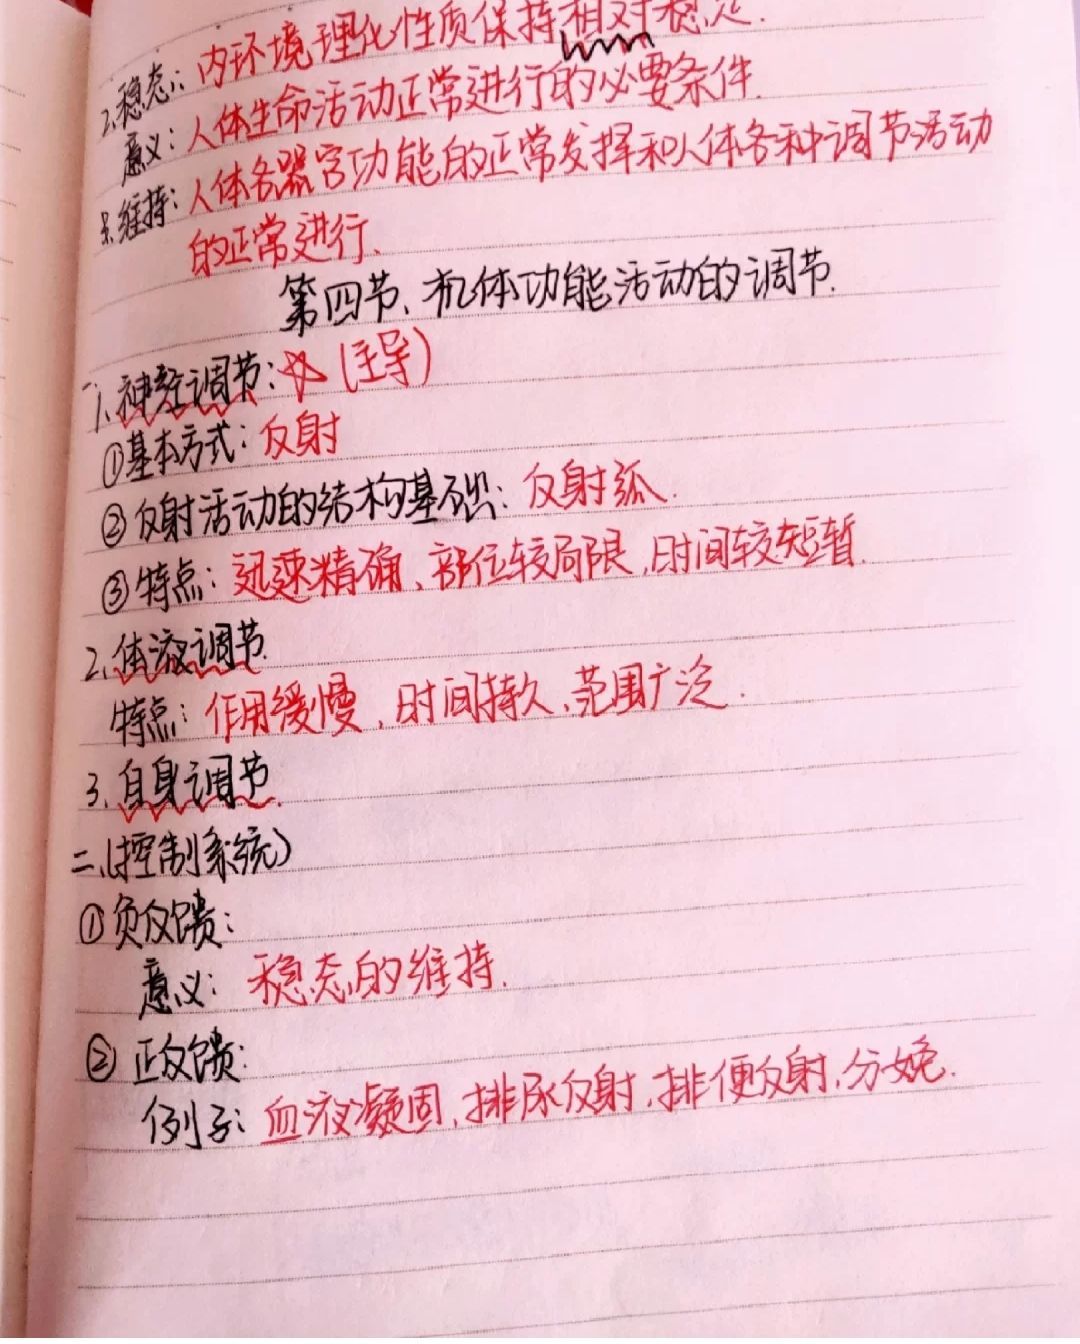 2.稳态:内环境理化性质保持相对稳定.
意义:人体生命活动正常进行的必要条件.
3.维持:人体各器官功能的正常发挥和人体各种调节活动
的正常进行.
第四节、机体功能活动的调节.
1.神经调节:☆(主导)
①基本方式:反射
②反射活动的结构基础:反射弧.
③特点:迅速精确、部位较局限,时间较短暂.
2.体液调节.
特点:作用缓慢,时间持久,范围广泛.
3.自身调节.
二、(控制系统)
①负反馈:
意义:稳态的维持.
②正反馈:
例子:血液凝固,排尿反射,排便反射,分娩.